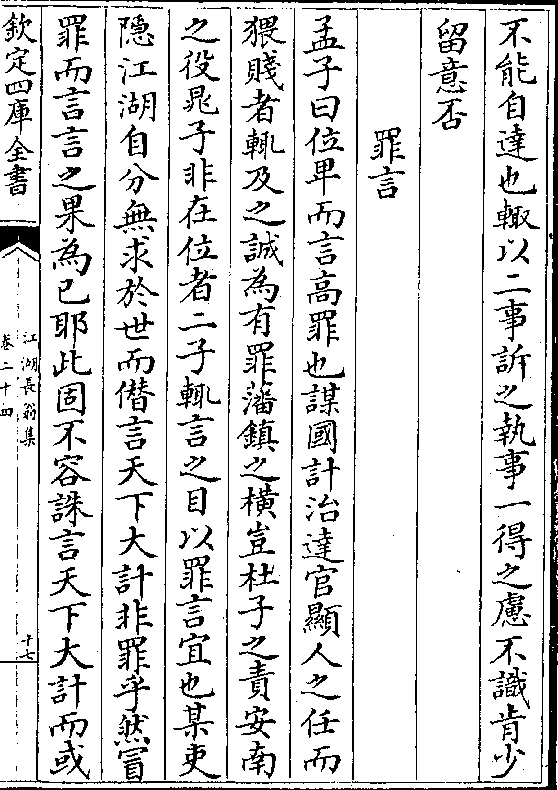 不能自達也輙以二事訴之執事一得之慮不識肯少
留意否
罪言
孟子曰位卑而言高罪也謀國計治達官顯人之任而
猥賤者輙及之誠為有罪藩鎮之橫豈杜子之責安南
之役晁子非在位者二子輙言之目以罪言宜也某吏
隠江湖自分無求於世而僭言天下大計非罪乎然冒
罪而言言之果為已耶此固不容誅言天下大計而或
欽定四庫全書
江湖長翁集
卷二十四
十七